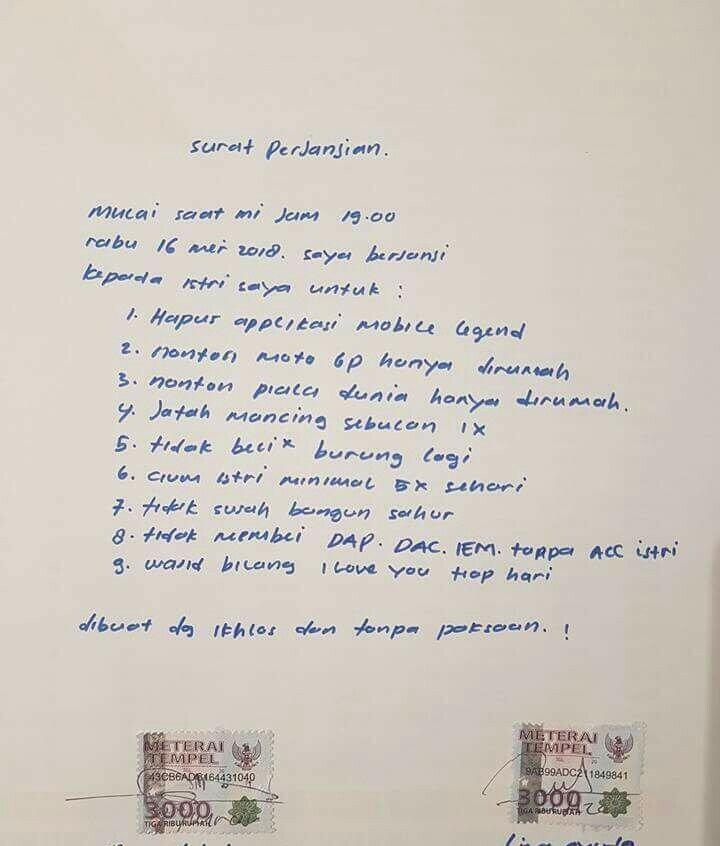 Surat Perjanjian.
Mulai saat ini Jam 19.00
rabu 16 mei 2018. saya berjanji
kepada istri saya untuk :
1. Hapus applikasi mobile legend
2. nonton moto GP hanya dirumah
3. nonton piala dunia hanya dirumah.
4. Jatah mancing sebulan 1x
5. tidak beli x burung lagi
6. cium istri minimal 5x sehari
7. tidak susah bangun sahur
8. tidak membeli DAP. DAC. IEM. tanpa ACC istri
9. wajib bilang I love you tiap hari
dibuat dg ikhlas dan tanpa paksaan. !
METERAI TEMPEL
43CB6ADC164431040
3000
TIGA RIBU RUPIAH
METERAI TEMPEL
9AB99ADC211849841
3000
TIGA RIBU RUPIAH